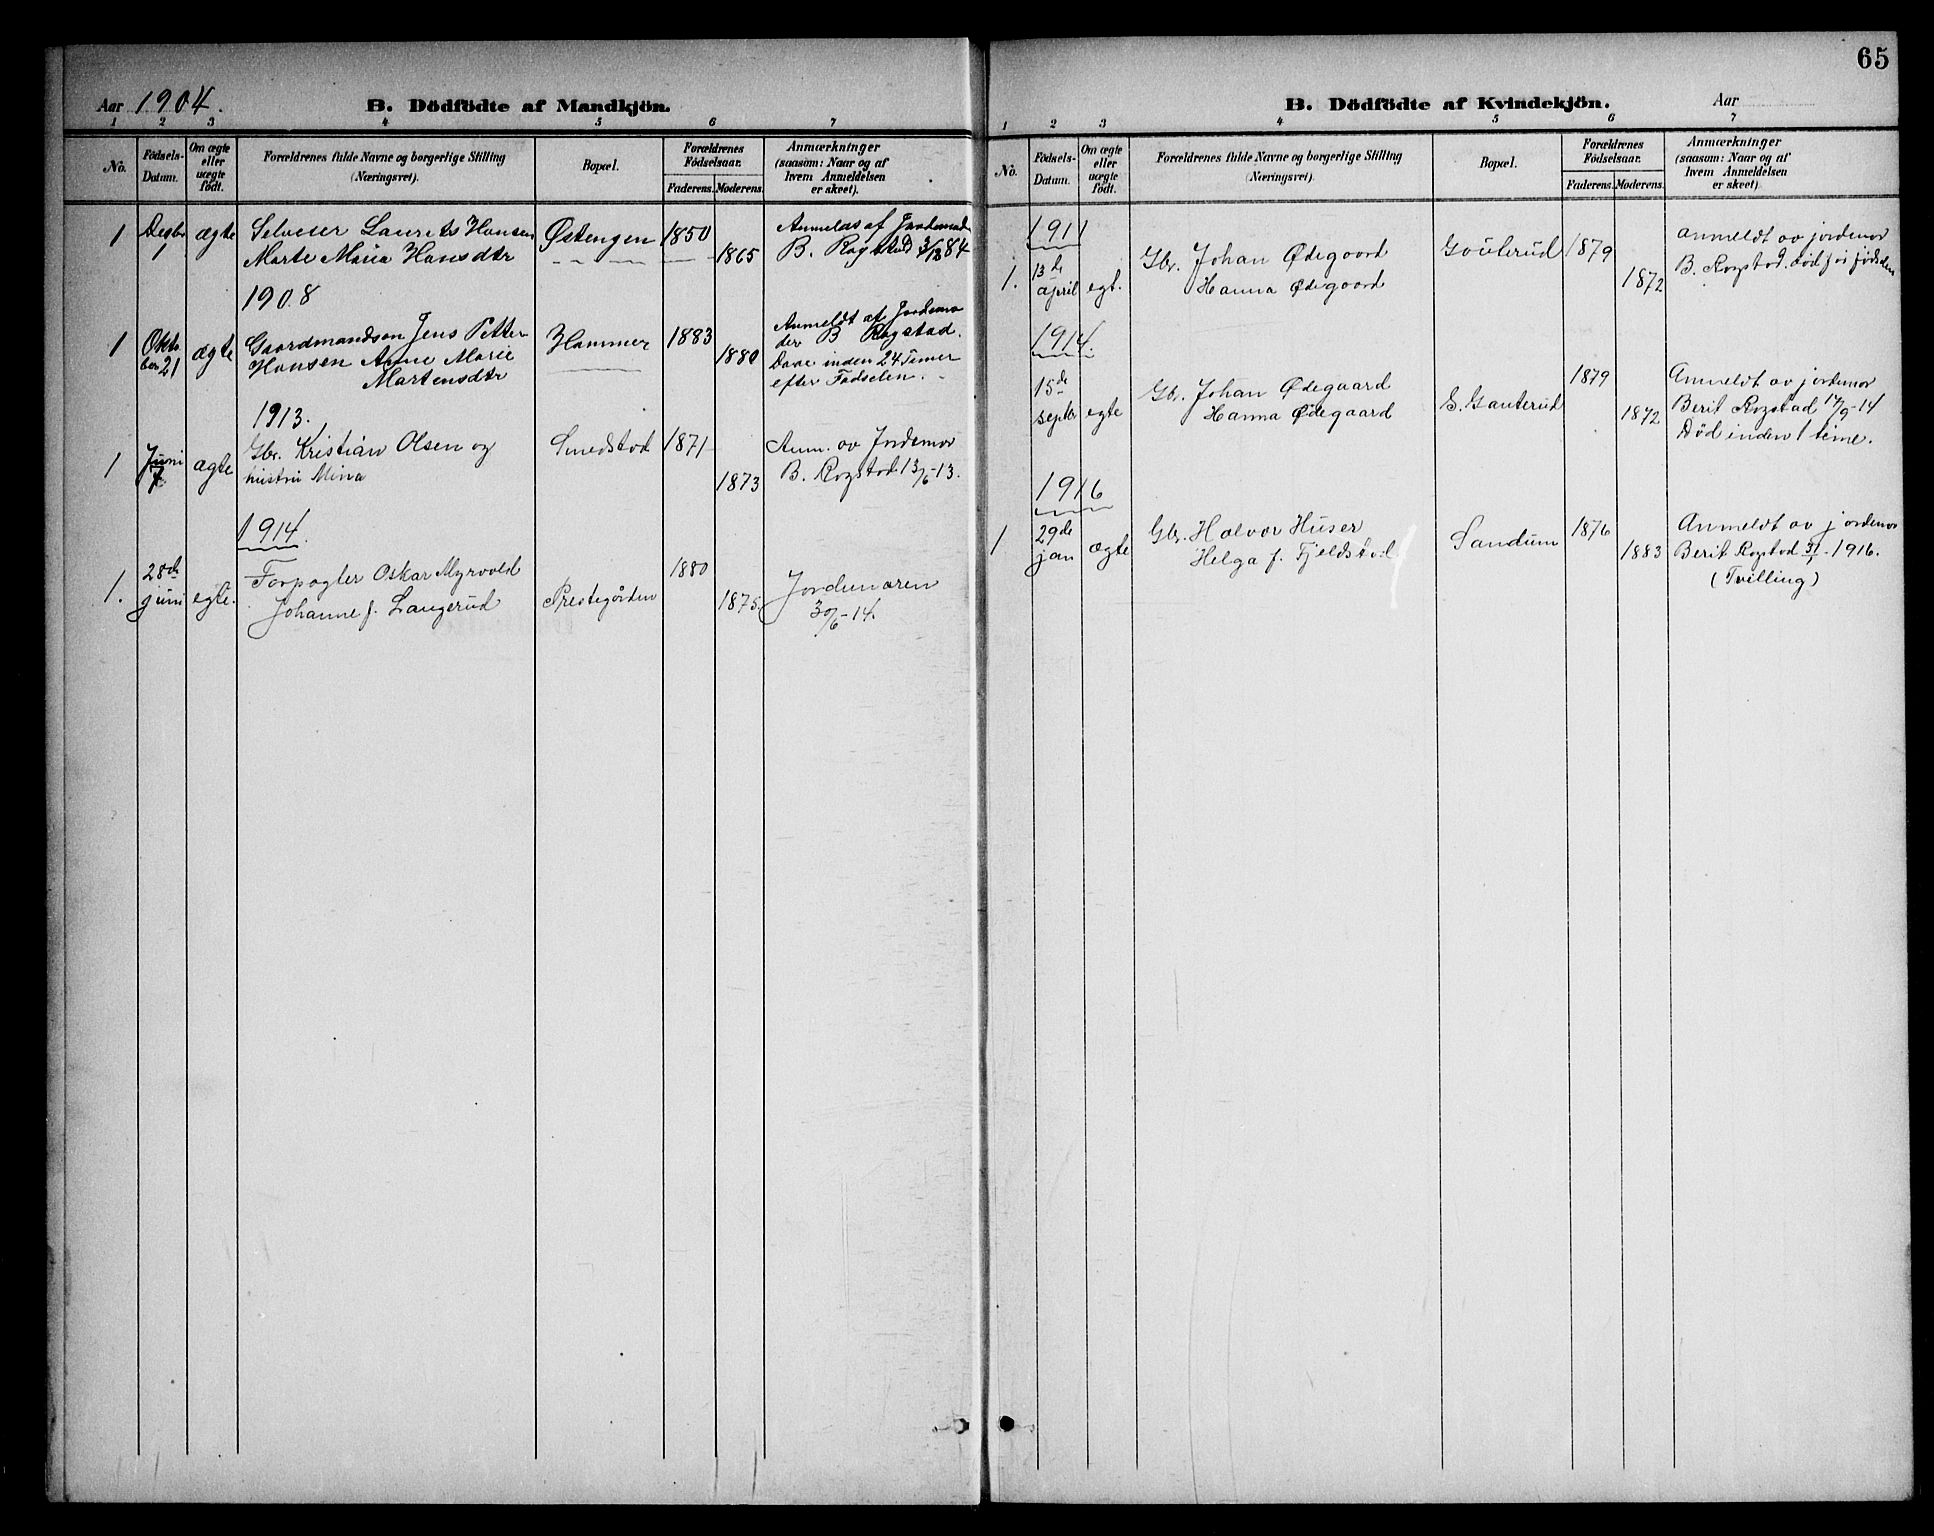 65
Aar 1904.
B. Dödfödte af Mandkjön.
1 2 3 4 5 6 7
No.
Födsels-Datum.
Om ægte eller uægte födt.
Forældrenes fulde Navne og borgerlige Stilling (Næringsvei).
Bopæl.
Forældrenes Födselsaar.
Faderens. Moderens.
Anmærkninger (saasom: Naar og af hvem Anmeldelsen er skeet).
1 Desbr 1 ægte
Laurits Hansen
Marte Maria Hansdtr
Østengen 1850 1865
af Jordemod
B. Rogstad 3/12
1908
1 Oktober 21 ægte
Gaardmandsøn Jens Petter
Hansen Anne Marie
Martensdtr
Hammer 1883 1880
Anmeldt af Jordemo
der B Rogstad.
Døde inden 24 Timer
efter Fødselen.
1913.
1 Juni 7 ægte
Gbr. Kristian Olsen og
hustru Mina
Smedstad 1871 1873
Anm. av Jordemor
B. Rogstad 13/6-13.
1914
1. 28de juni egte.
Forpagter Oskar Myrvold
Johanne f. Langerud
Prestegården 1880 1875.
Jordemoren
30/6-14.
B. Dödfödte af Kvindekjön.
Aar
1 2 3 4 5 6 7
No.
Födsels-Datum.
Om ægte eller uægte födt.
Forældrenes fulde Navne og borgerlige Stilling (Næringsvei).
Bopæl.
Forældrenes Födselsaar.
Faderens. Moderens.
Anmærkninger (saasom: Naar og af hvem Anmeldelsen er skeet).
1911
1. 13de april egt.
Gbr. Johan Ødegaard
Hanna Ødegaard
1879 1872
anmeldt av jordemor
B. Rogstad. død før fødselen
1914.
15de septbr egte
Gbr. Johan Ødegaard
Hanna Ødegaard
S. Gauterud 1879 1872
Anmeldt av jordemor
Berit Rogstad 17/9-14
Død inden 1 time.
1916
1 29de jan ægte
Gbr. Halvor Huser
Helga f. Fjeldstad
Sandum 1876 1883
Anmeldt av jordemor
Berit Rogstad 31/1-1916.
(Tvilling)